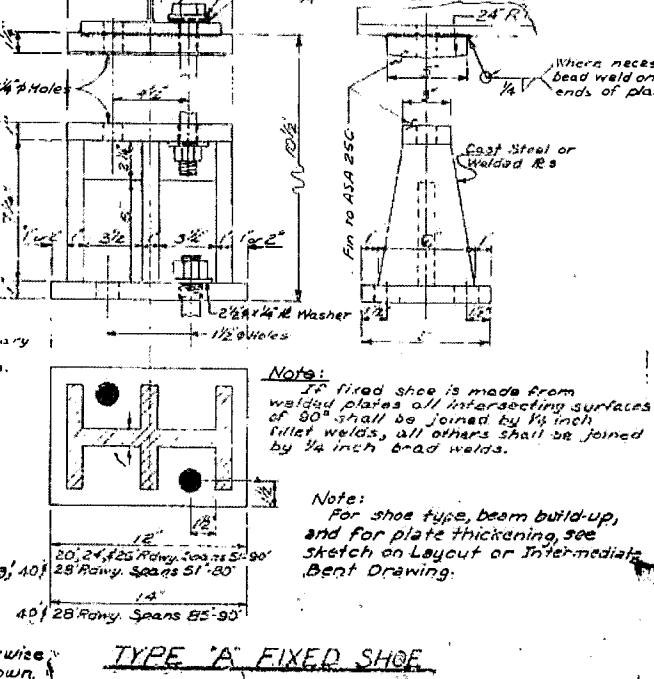 24" R
Where neces
bead weld on
ends of pla
1/4
1/4" ϕ Holes
4 1/2"
10 1/2"
Fin to ASA 250
Cast Steel or
Welded ℞s
2 1/4"
7 1/2"
5"
1" or 2" 1" 3 1/2 1" 3 1/2" 1" 1" or 2"
1" 6" 1"
2 1/2" x 1/4" ℞ Washer
1 1/2" ϕ Holes
1 1/2 1 1/2
ary
Note:
If fixed shoe is made from
welded plates all intersecting surfaces
of 90° shall be joined by
inch
fillet welds, all others shall be joined
by 1/4 inch bead welds.
1"
1 1/2
1 1/2
Note:
For shoe type, beam build-up,
and for plate thickening, see
sketch on Layout or Intermediate
Bent Drawing.
12"
20', 24', & 26' Rdwy. Spans 51'-90'
40' 28' Rdwy. Spans 51'-80'
14"
40' 28' Rdwy. Spans 85'-90'
TYPE "A" FIXED SHOE
wise
own.